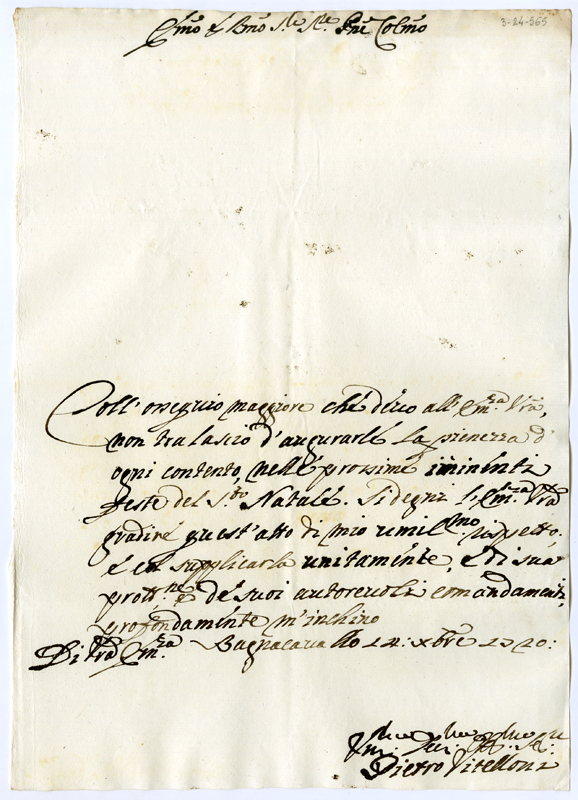 3-24-565
Em̃o e Rm̃o Sig.re Sig.re Pñe Colm̃o
Coll' ossequio maggiore che devo all' Em.za Vrã,
non tralascio d'augurarle la pienezza d'
ogni contento, nelle prossime iminenti
feste del S.to Natale. Si degni l' Em.za Vrã
gradire quest'atto di mio umil.mo rispetto,
é in supplicarla unitamente, é di sua
prott.ne é de' suoi autorevoli comandamenti,
profondamente m'inchino
Di Vrã Em.za Bagnacavallo 14: Xbre 1720:
Pietro Vitelloni